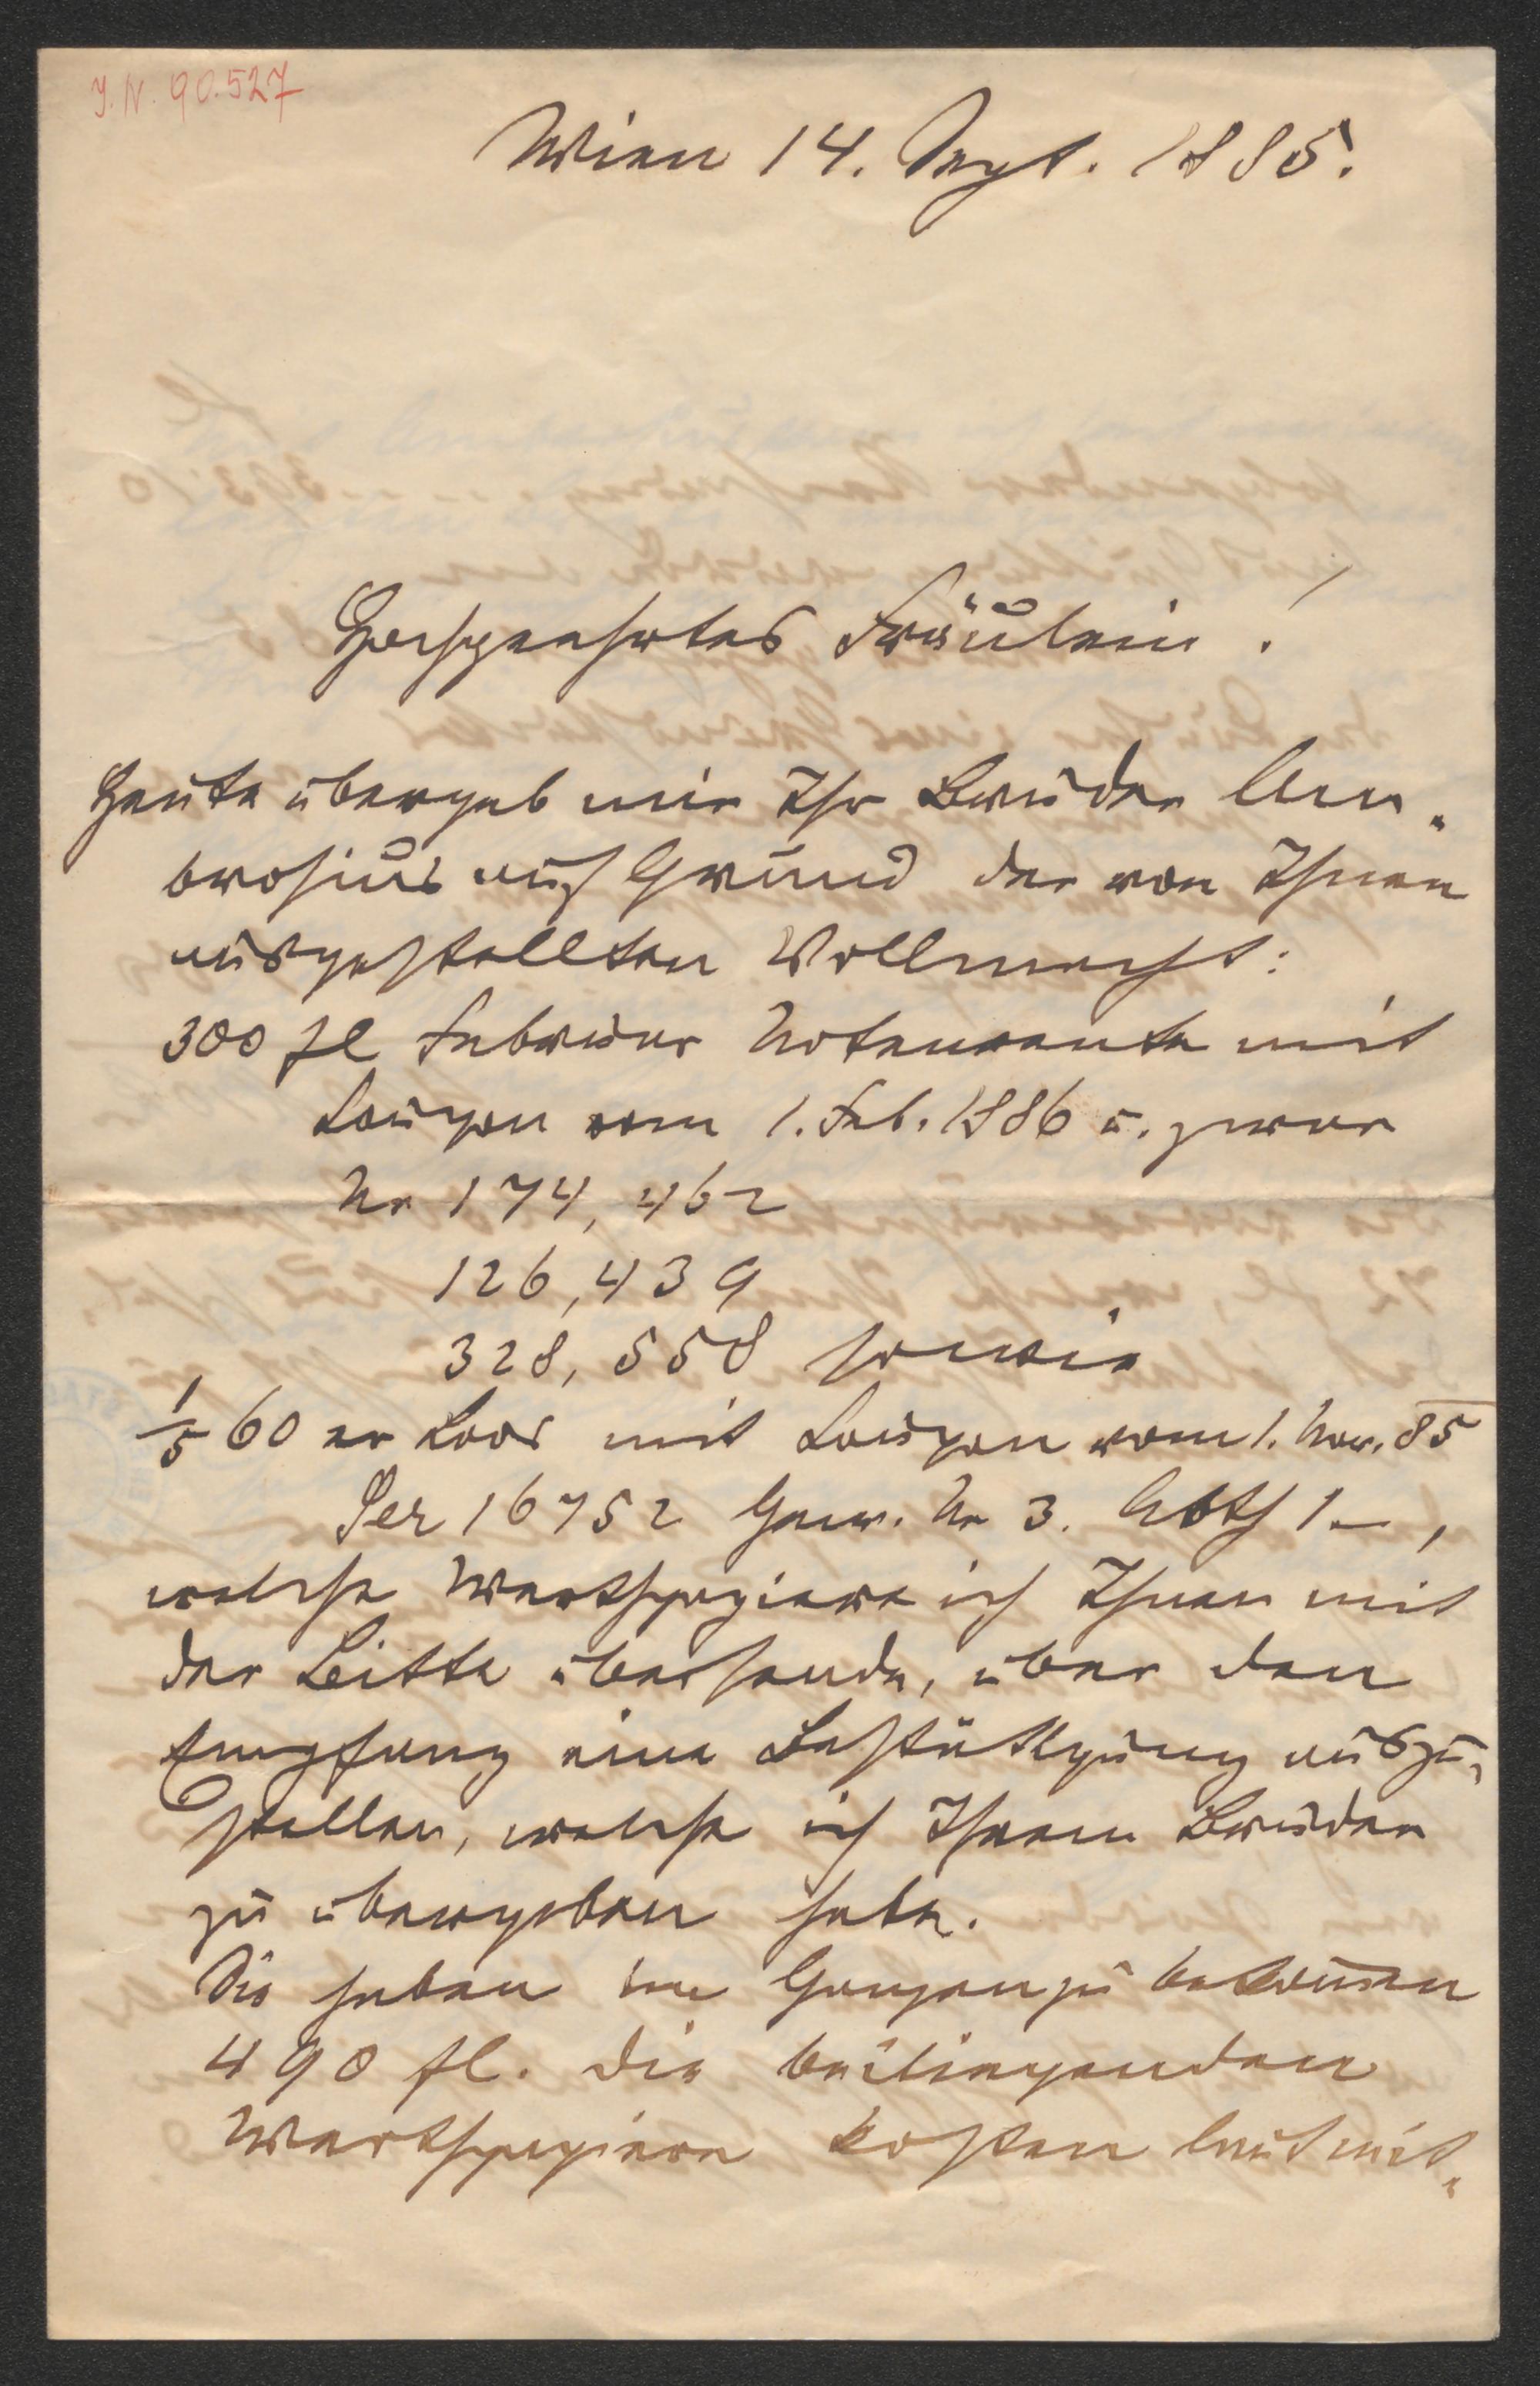 J.N. 90.527
Wien 14. Sept. 1885.
Hochgeehrtes Fräulein!
Heute übergab mir Ihr Bruder Am-
brosius auf Grund der von Ihnen
ausgestellten Vollmacht:
300 fl Februar Notenrente mit
Coupon vom 1. Feb. 1886 u. zwar
Nr 174,462
126,439
328,558 sowie
1/5 60 er Loos mit Coupon vom 1. Nov. 85
Ser 16752 Gew. Nr 3. Abth 1 –,
welche Werthpapiere ich Ihnen mit
der Bitte übersende, über den
Empfang eine Bestättigung auszu-
stellen, welche ich Ihrem Bruder
zu übergeben habe.
Sie haben im Ganzen zu bekommen
490 fl. Die beiliegenden
Werthpapiere kosten laut mit-